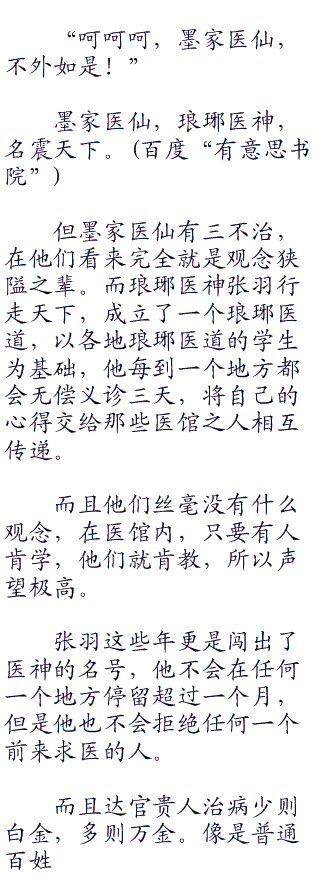 “呵呵呵，墨家医仙，
不外如是！”
墨家医仙，琅琊医神，
名震天下。(百度“有意思书
院”)
但墨家医仙有三不治，
在他们看来完全就是观念狭
隘之辈。而琅琊医神张羽行
走天下，成立了一个琅琊医
道，以各地琅琊医道的学生
为基础，他每到一个地方都
会无偿义诊三天，将自己的
心得交给那些医馆之人相互
传递。
而且他们丝毫没有什么
观念，在医馆内，只要有人
肯学，他们就肯教，所以声
望极高。
张羽这些年更是闯出了
医神的名号，他不会在任何
一个地方停留超过一个月，
但是他也不会拒绝任何一个
前来求医的人。
而且达官贵人治病少则
白金，多则万金。像是普通
百姓